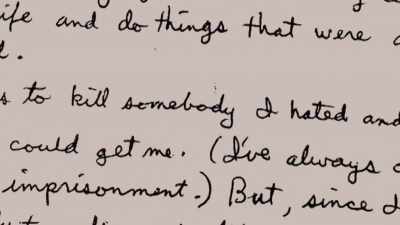 ife and do things that were
.
s to kill somebody I hated and
could get me. (I've always
imprisonment.) But, since I